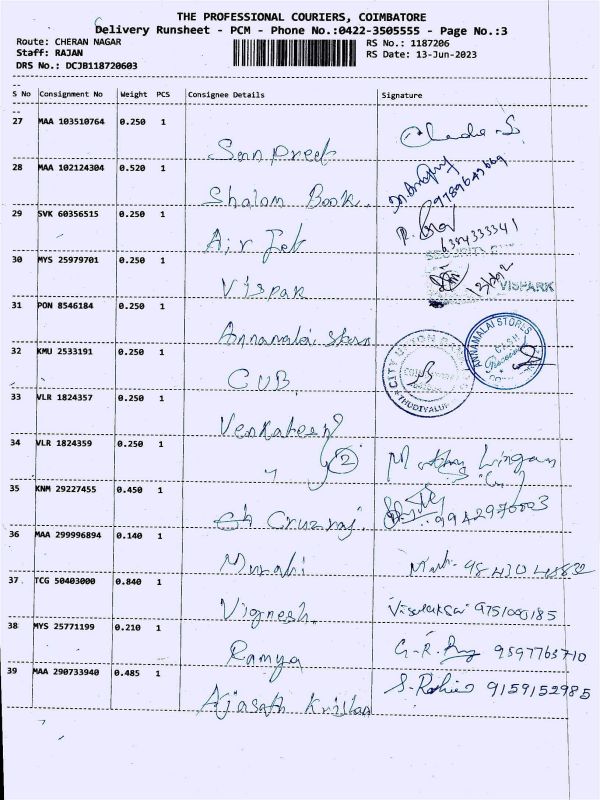 THE PROFESSIONAL COURIERS, COIMBATORE
Delivery Runsheet - PCM - Phone No.:0422-3505555 - Page No.:3
Route: CHERAN NAGAR RS No.: 1187206
Staff: RAJAN RS Date: 13-Jun-2023
DRS No.: DCJB118720603
S No Consignment No Weight PCS Consignee Details Signature
27 MAA 103510764 0.250 1
28 MAA 102124304 0.520 1
Shalom Book
29 SVK 60356515 0.250 1
Air Tek
6384333341
30 MYS 25979701 0.250 1
Vispak
VISPARK
31 PON 8546184 0.250 1
Annamalai Stores
ANNAMALAI STORES
CASH
32 KMU 2533191 0.250 1
CUB
CITY UNION BANK
THUDIYALUR
33 VLR 1824357 0.250 1
Venkatesh
34 VLR 1824359 0.250 1
" 2
Lingam
35 KNM 29227455 0.450 1
Ch Cruzraj
36 MAA 299996894 0.140 1
Murali
37 TCG 50403000 0.840 1
Vignesh.
38 MYS 25771199 0.210 1
Ramya
G.R. 9597763710
39 MAA 290733940 0.485 1
Ajasath Krishna
S. 9159152985